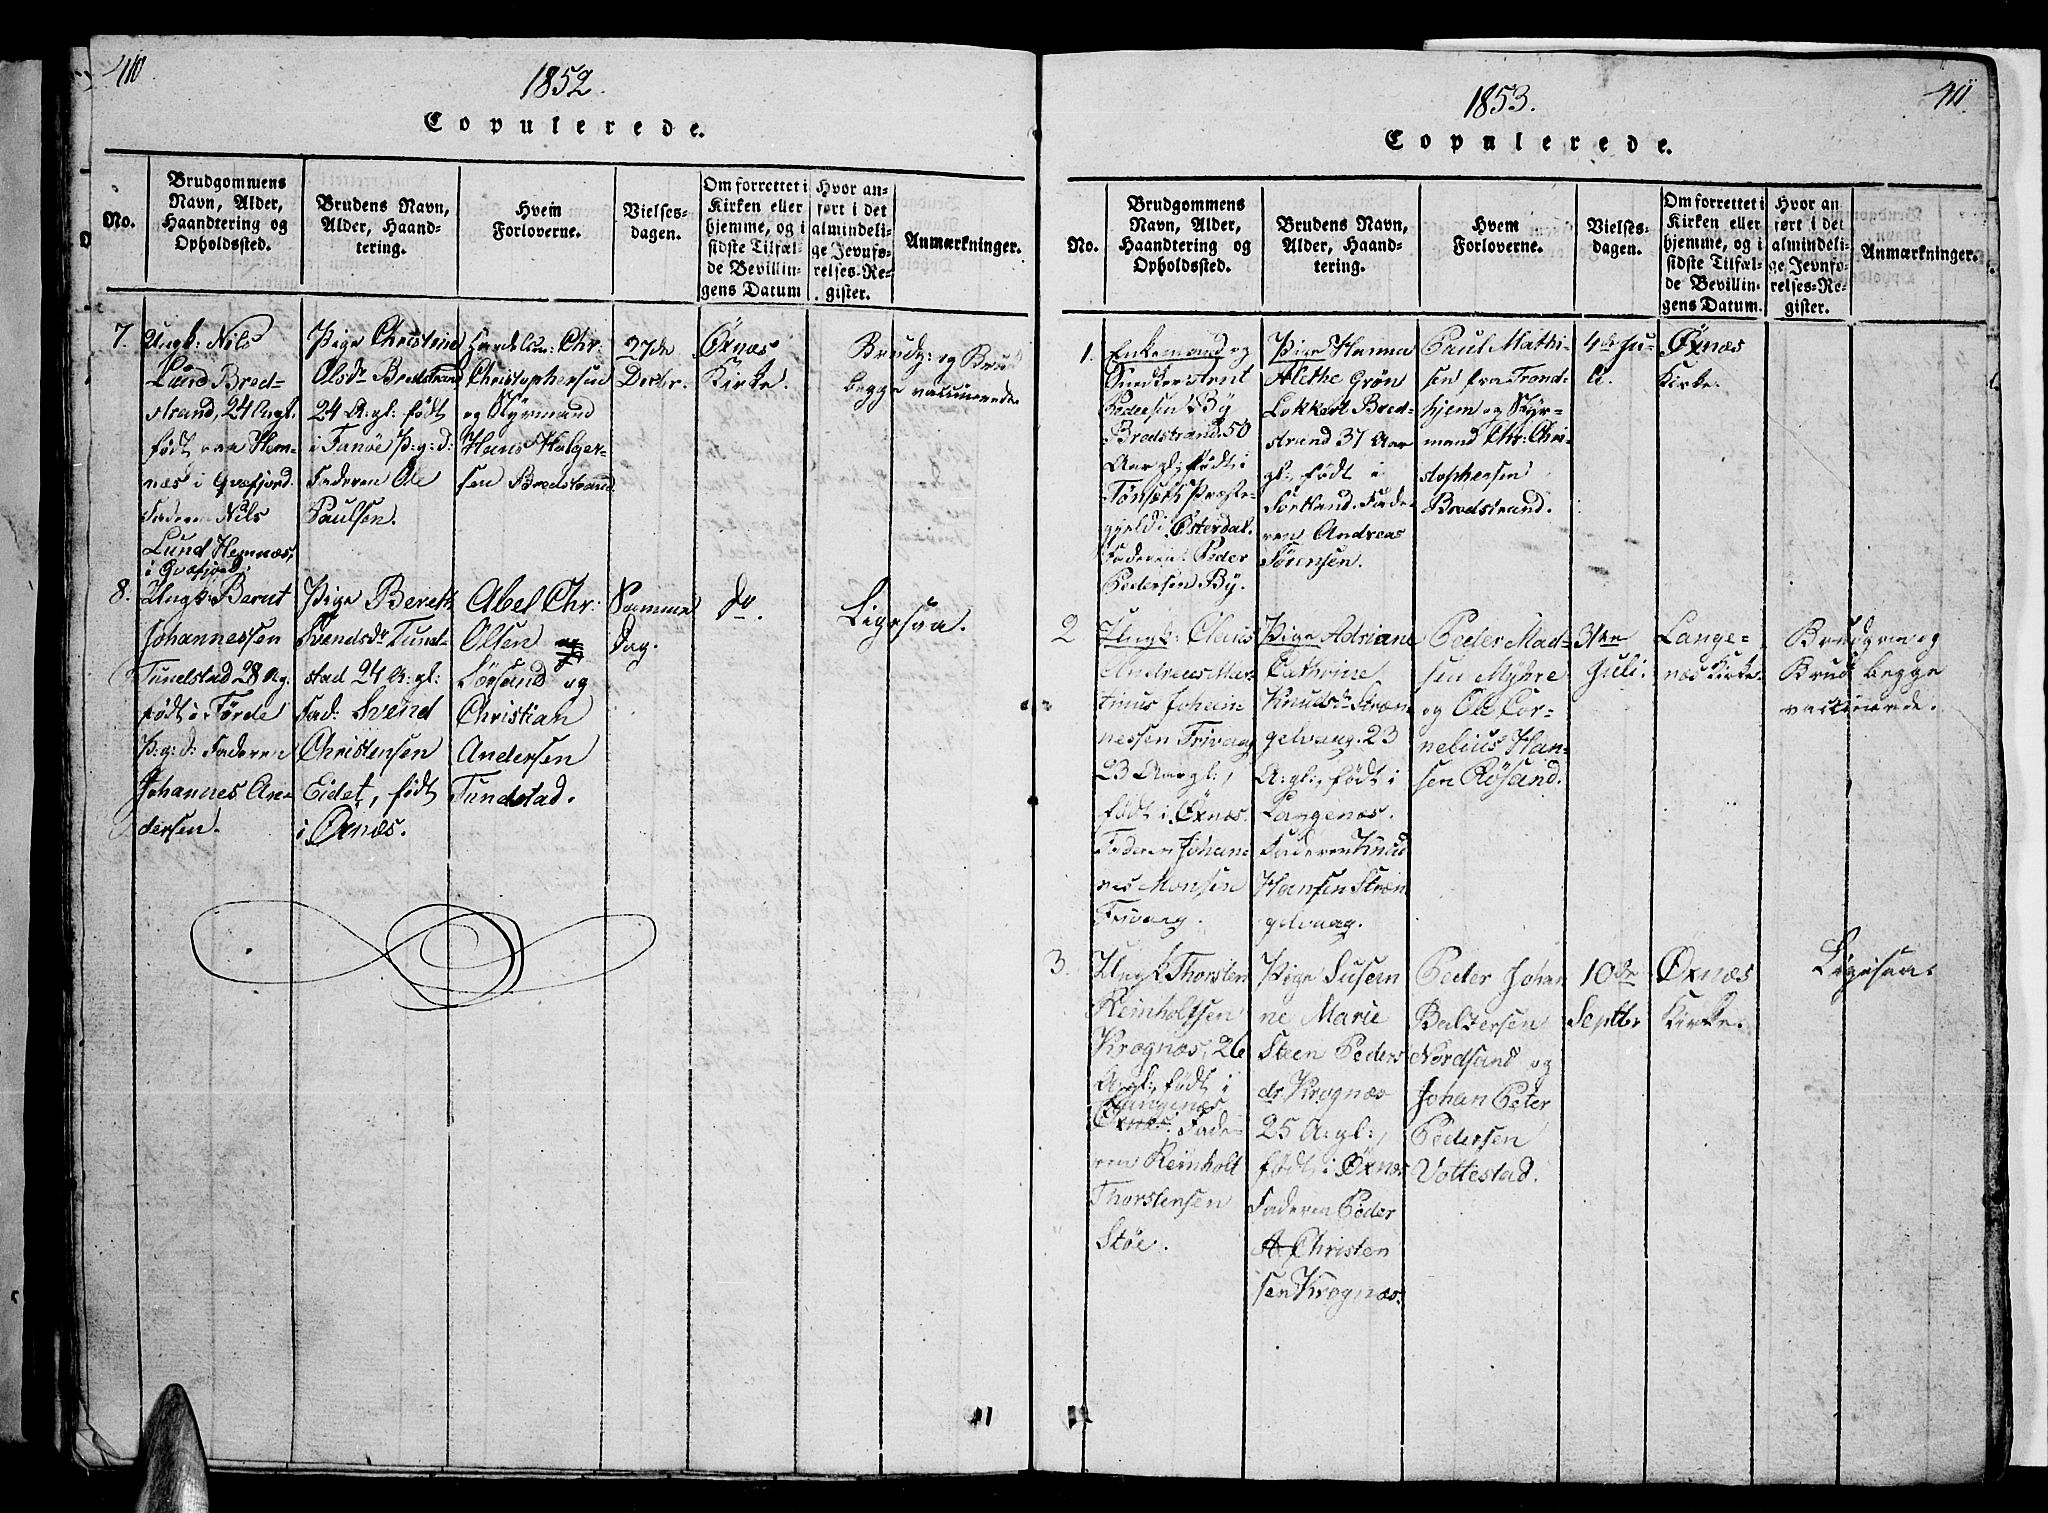 410.
1852.
Copulerede.
No.
Brudgommens
Navn, Alder,
Haandtering og
Opholdssted.
Brudens Navn,
Alder, Haand-
tering.
Hvem
Forloverne.
Vielses-
dagen.
Om forrettet i
Kirken eller
hjemme, og i
sidste Tilfæl-
de Bevillin-
gens Datum
Hvor an-
ført i det
almindeli-
ge Jevnfø-
relses-Re-
gister.
Anmærkninger.
7.
Ungk: Nils
Lund Bred-
strand, 24 A gl.
født paa Hem-
næs i Qvæfjord
Faderen Nils
Lund Hemnæs,
i Qvæfjord.
Pige Christine
Olsdr Bredstrand
24 A: gl: født
i Tanøe P: g: d:
Faderen Ole
Paulsen.
Handelsm: Chr:
Christophersen
og Styrmand
Hans Holger-
sen Bredstrand
27de
Decbr.
Öxnæs
Kirke.
Brudg: og Brud
begge vaccinerede
8.
Ungk: Bernt
Johannessen
Tundstad 28 A g:
født i Førde
P: g: d: Faderen
Johannes An-
dersen.
Pige Bereth
Svendsdr Tund-
stad 24 A: gl:
Fad: Svend
Christensen
Eidet, født
i Öxnæs.
Abel Chr:
Olsen
Sörsand og
Christian
Andersen
Tundstad.
Samme
Dag.
do.
Ligesaa.
411.
1853.
Copulerede.
No.
Brudgommens
Navn, Alder,
Haandtering og
Opholdssted.
Brudens Navn,
Alder, Haand-
tering.
Hvem
Forloverne.
Vielses-
dagen.
Om forrettet i
Kirken eller
hjemme, og i
sidste Tilfæl-
de Bevillin-
gens Datum.
Hvor an
ført i det
almindeli-
ge Jevnfø-
relses-Re-
gister.
Anmærkninger.
1.
Enkemand og
Snedker Arnt
Pedersen By
Bredstrand 50
Aar gl; født i
Tönset Præste-
gjeld i Österdal.
Faderen: Peder
Pedersen By.
Pige Hanna
Alethe Grön
Lokkert Bred-
strand 37 Aar
gl:, født i
Sortland. Fade-
ren Andreas
Sörensen.
Paul Mathi-
sen fra Trond-
hjem og Styr-
mand Chr: Chri-
stophersen
Bredstrand.
4de Ju-
li.
Öxnæs
Kirke.
2
Ungk: Claus
Andreas Mar-
tinus Johan-
nessen Frivaag
23 Aar gl:,
født i Öxnæs.
Faderen Johan-
nes Monsen
Frivaag.
Pige Adriane
Cathrine
Knudsdr Stræn-
gelvaag. 23
A: gl:, født i
Langenæs.
Faderen Knud
Hansen Stræn
gelvaag.
Peder Mad-
sen Myhre
og Ole Cor-
nelius Han-
sen Rösand.
31te
Juli.
Lange-
næs Kirke.
Brudgm og
Brud begge
vaccinerede.
3.
Ungk Thorsten
Reinholtsen
Krognæs, 26
A. gl:, født i
Langenæs
Öxnæs. Fade-
ren Reinholt
Thorstensen
Støe.
Pige Susan
ne Marie
Steen Peders
dr. Krognæs
25 A: gl:,
født i Öxnæs
Faderen Peder
A Christen
sen Krognæs.
Peder Johan
Baltzersen
Nordsand og
Johan Peter
Pedersen
Vottestad.
10de
Septbr
Öxnæs
Kirke.
Ligesaa.